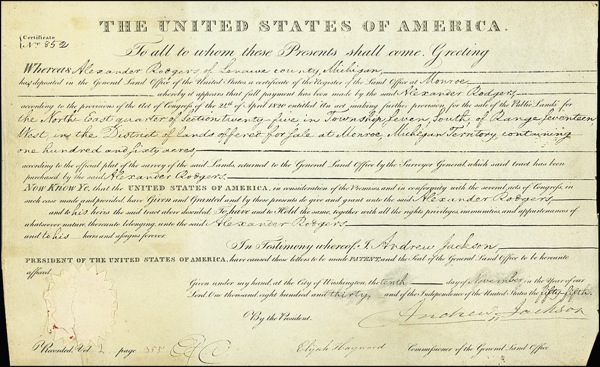 THE UNITED STATES OF AMERICA.
Certificate
No. 852
To all to whom these Presents shall come, Greeting
Whereas Alexander Rodgers of Lenawe county, Michigan
has deposited in the General Land Office of the United States a certificate of the Register of the Land Office at Monroe
whereby it appears that full payment has been made by the said Alexander Rodgers,
according to the provisions of the Act of Congress of the 24th of April 1820 entitled "An act making further provision for the sale of the Public Lands" for
the North East quarter of Section twenty five, in Township, seven, South, of Range, seventeen,
West, in the District of lands offered for sale at Monroe, Michigan Territory, containing
one hundred and sixty acres,
according to the official plat of the survey of the said Lands, returned to the General Land Office by the Surveyor General, which said tract has been
purchased by the said Alexander Rodgers,
NOW KNOW YE, that the UNITED STATES OF AMERICA, in consideration of the Premises, and in conformity with the several acts of Congress, in
such case made and provided, have Given and Granted and by these presents do give and grant unto the said Alexander Rodgers,
and to his heirs the said tract above described: To have and to Hold the same, together with all the rights, privileges, immunities, and appurtenances of
whatsoever nature, thereunto belonging, unto the said Alexander Rodgers
and to his heirs and assigns forever.
In Testimony whereof, I, Andrew Jackson
PRESIDENT OF THE UNITED STATES OF AMERICA, have caused these letters to be made PATENT, and the Seal of the General Land Office to be hereunto
affixed.
Given under my hand, at the City of Washington, the tenth day of November in the Year of our
Lord, One thousand eight hundred and thirty, and of the Independence of the United States the fifty-fifth.
By the President.
Andrew Jackson
Recorded, Vol. 2 page 355
Elijah Hayward Commissioner of the General Land Office.